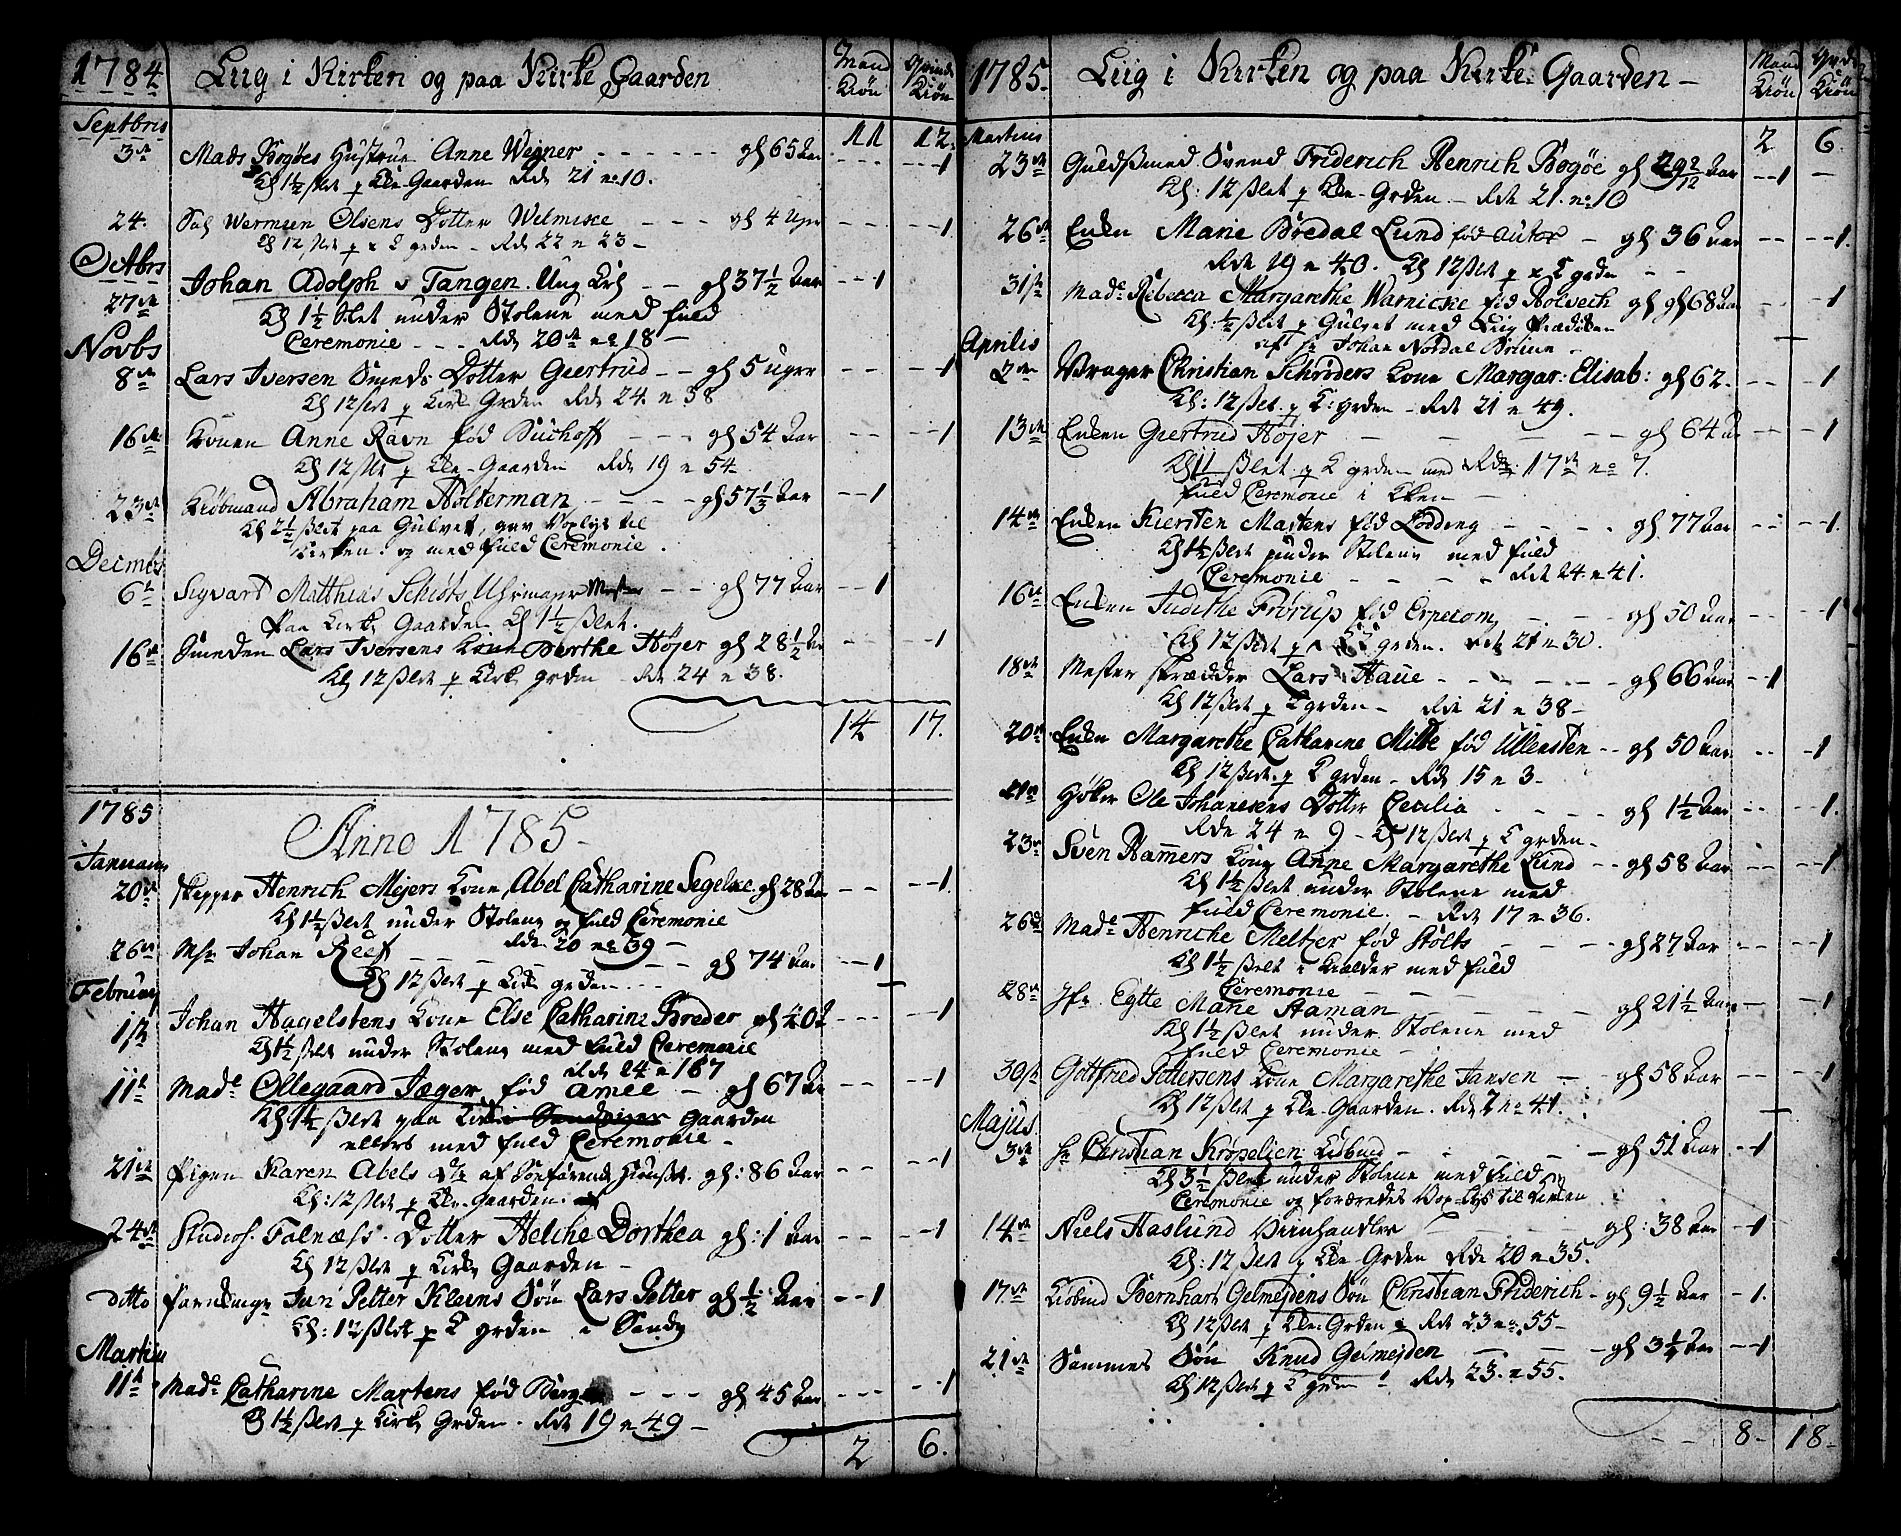 1784 Liig i Kirken og paa Kirke Gaarden Mand Kiön Qvinde Kiön
Septbris 11 12.
3de Mads Bogöes Hustrue Anne Weiner - - - - - - gl 65 Aar - - - - -1
Kl 1½ slet p Kke-Gaarden Rde 21 no 10.
24. Sal Wermun Olsens Dotter Welmicke - - - gl 4 Uger - - - --1.
Kl 12 slet p K grden - Rde 22 n 23-
Octobrs
27de Johan Adolph v Tangen. Ung Krl - - gl 37½ Aar - - -1
Kl 1½ Slet under Stolene med fuld
Ceremonie - - - Rde 20de no 18 -
Novbs
8de Lars Iversen Smeds Dotter Geertrud - - gl 5 uger - - - -1
Kl 12 slet p Kirk Grden Rde 24 n 38
16de Konen Anne Ravn föd Buchoff - - - gl 54 Aar - - - -1
Kl 12 slet p Kke-Gaarden Rde 19 n 54
23de Kiöbmand Abraham Holterman - - - - gl 57⅓ Aar - - 1
Kl 2½ slet paa Gulvet, gav Voxlys til
Kirken. og med fuld Ceremonie.
Decmbs
6te Sigvart Matthias Schiöts Uhrmager Mester - - gl 77 Aar - - 1
Paa Kirke Gaarden Kl 1½ slet.
16de Smeden Lars Iversens Kone Berthe Höjer gl 28½ Aar - - - -1
Kl 12 slet p Kirk grden - Rde 24 n 38.
14 17.
1785
Anno 1785-
Januarii
20de Skepper Henrich Mejers Kone Abel Catharine Segelcke gl 28 Aar - - --1.
Kl 1½ slet under Stolene og fuld Ceremonie
Rde 20 no 39 -
26de Msr Johan Reef - - - - - - gl 74 Aar - -1
Kl 12 slet p Kirke grden - - -
Februarj
1ste Johan Hagelstens Kone Else Catharine Breder gl 40 - - - -1
Kl 1½ slet under Stolene med fuld Ceremonie
Rde 24 n 167
11te Made Ollegaard Jæger, föd Amee - gl 67 Aar - - - -1
Kl 1½ slet paa Kirke Gaarden
ellers med fuld Ceremonie -
21de Pigen Karen Abels gl: 86 Aar - - - -1
Kl: 12 slet p Kke-Gaarden.
24de Studios. Falnæss. Dotter Helche Dorthea gl: 1 Aar - - - -1
Kl 12 slet p Kirke Gaarden -
ditto Jan Petter Kleens Sön Lars Petter gl ½ Aar --1
Kl: 12 slet p K grden i Sandv
Martii
11te Made Catharine Martens föd - - - gl 45 Aar - - - -1
Kl 1½ slet p Kirk Grden. Rde 19 n 49 -
2 6.
1785. Liig i Kirken og paa Kirke: Gaarden - Mand Kiön Kiön
Martius 2 6.
23de Guldsmed Svend Friderich Henrich Bogöe gl 29 2/12 Aar --1 -
Kl: 12 slet p Kke-Grden - Rde 21. no 10
26de Enken Marie Bredal Lund - gl 36 Aar - - --1.
Rde 19 n 40. Kl 12 slet p K grden - -
31ste Made Rebecca Margarethe Warnicke föd gl 68 Aar - - -1
Kl: ½ slet p Gulvet med Liig Prædiken
af hr Johan Nordal Bruun -
Aprilis
2den Vrager Christian Schröders Kone Margar: Elisab: gl 62. - - -1
Kl: 12 slet. p K: grden - Rde 21 n 49.
13de Enken Giertrud Höjer - - - - gl 64 - - -1
Kl 11 slet p K grden med Rde 17de no 7.
fuld Ceremonie i Kken -
14de Enken Kiersten Martens föd Lodding - - - gl 77 Aar - - -1.
Kl 1½ slet under Stolene med fuld
Ceremonie - - - - Rde 24. n 41.
16de Enken Judithe Frörup föd - - gl 50 Aar - - -1
Kl 12 slet p K grden. Rde 21 n 30.
18de Mester skrædder Lars Haue - - - - - - gl 66 Aar --1
Kl 12 slet p K grden - Rde 21 n 38-
20de Enken Margarethe Catharine Milde föd Ullensten - - gl 50 Aar - - -1
Kl 12 slet. p K grden - Rde 15 n 3-
21de Höker Ole Johannesens Dotter Cecilia - - - gl 1½ Aar - - -1.
Rde 24 n 9 - Kl 12 slet p K grden -
23de Sven Hamers Kone Anne Margarethe Lund - - gl 58 Aar - - -1
Kl 1½ slet under Stolene med
fuld Ceremonie. - Rde 17 n 36.
26de Made Henriche Meltzer föd Stolts - - - gl 27 Aar - - -1
Kl 1½ slet i Kielder med fuld
Ceremonie - - -
28de Jfr. Egtte Marie Haman - - - - gl 21½ Aar - - -1
Kl 1½ slet under Stolene med
fuld Ceremonie -
30ste Gottfried Pettersens Kone Margarethe Jansen - - gl 58 Aar - - --1
Kl 12 slet p Kke-Gaarden. Rde 2 no 41.
Majus
3de hr Christian Kröpelien Kiöbmd - - - - gl 51 Aar --1
Kl 3½ slet under Stolene med fuld
Ceremonie og foræredes Vox-Lys til Kirken
14de Niels Haslund Viinhandler - - - gl: 38 Aar --1
Kl: 12 slet p Kke Grden Rde 20 n 35.
17de Kiöbmd Bernhart Gelmejdens Sön Christian Friderich - gl 9½ Aar - 1.
Kl 12 slet p Kke: Grden Rde 23 no 55 -
21de Sammes Sön Knud Gelmejden - - - gl 3¼ Aar --1
Kl 12 slet p K grden Rde 23. n 55.
8- 18-